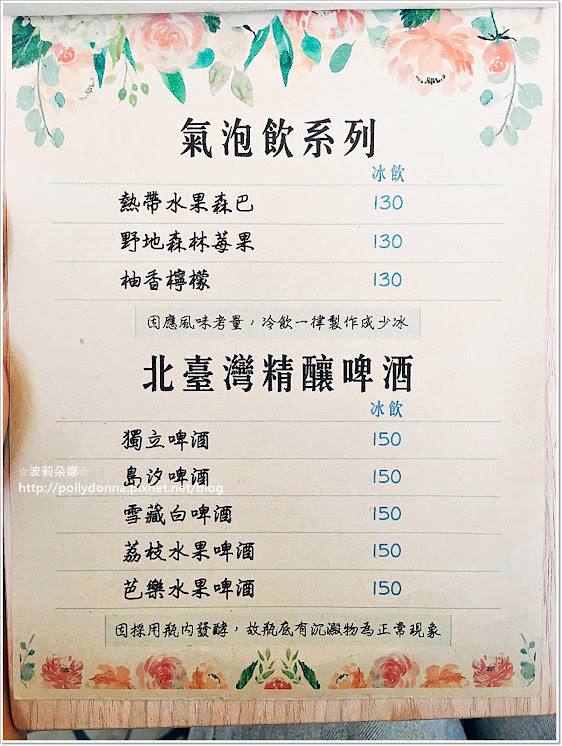 氣泡飲系列
冰飲
熱帶水果森巴 130
野地森林莓果 130
柚香檸檬 130
因應風味考量，冷飲一律製作成少冰
北臺灣精釀啤酒
冰飲
獨立啤酒 150
☆波莉朵娜☆
島汐啤酒 150
http://pollydonna.pixnet.net/blog
雪藏白啤酒 150
荔枝水果啤酒 150
芭樂水果啤酒 150
因採用瓶內發酵，故瓶底有沉澱物為正常現象